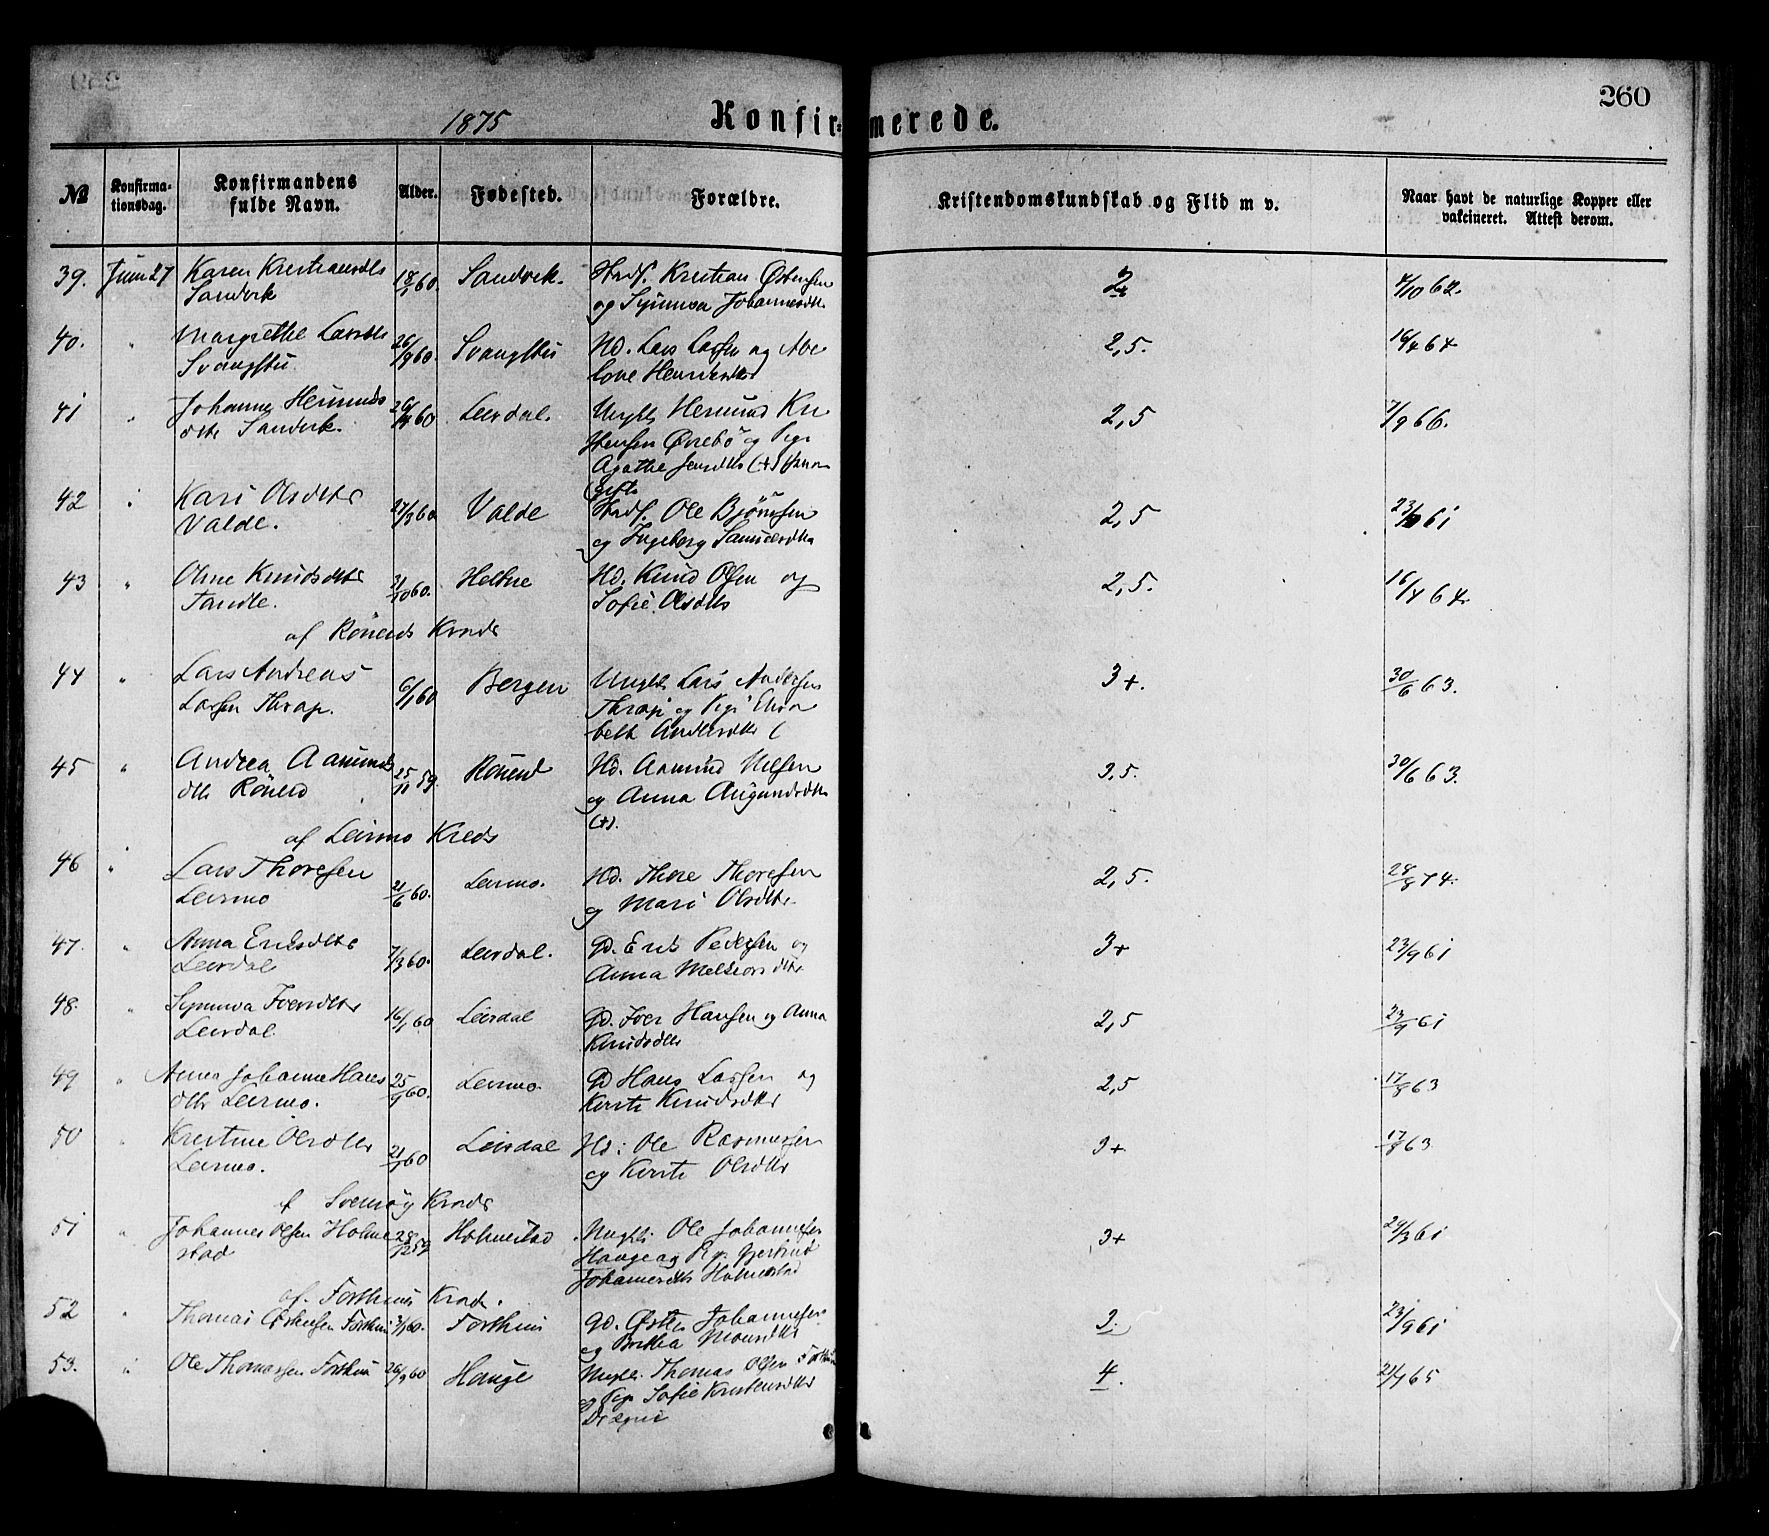 260
1875
Konfirmerede.
№
Konfirmationsdag.
Konfirmandens fulde Navn.
Alder.
Fødested.
Forældre.
Kristendomskundskab og Flid m v.
Naar havt de naturlige Kopper eller vakcineret. Attest derom.
39. Juni 27 Karen Kristiansdtr 18/1 60. Sandvik. Kristian Østensen 2 4/10 62.
Sandvik og Synneva Johannesdtr
40. " Margrethe Larsdtr 26/9 60. Svangstu Hd. Lars Larsen og Abe 2,5. 16/4 64
Svangstu lone
41 " Johanna Hermunds 60 Leirdal. Ungk. Hermund Kri 2,5 7/9 66.
dtr Sandvik. stensen Øvrebö og Pige
Agathe Jensdtr (+)
42 " Kari Olsdtr 27/3 60 Valde Ole Björnsen 2,5 23/9 61
Valde. og Ingeborg
43 " Knudsdtr 60. Heltne Hd. Knud Olsen og 2,5. 16/4 64
Tandle. Sofie Olsdtr
af Röneids Kreds
44 " Lars Andreas 6/1 60 Bergen Ungk. Lars Andersen 3+. 30/6 63.
Larsen Thrap. Thrap og Pige Elisa
beth Andersdtr
45 " Andrea Aamunds 25/11 59. Röneid Hd. Aamund Nilsen 3,5. 30/6 63.
dtr Röneid og Anna Augundsdtr
(+).
af Leirmo Kreds
46 " Lars Thoresen 21/6 60. Leirmo. Hd. Thore Thoresen 2,5. 28/8 74.
Leirmo og Mari Olsdtr
47. " Anna Eriksdtr 7/3 60. Leirdal. Gd. Erik Pedersen og 3+ 23/9 61
Leirdal Anna Melkiorsdtr
48. " Synneva Iversdtr 16/1 60 Leirdal Gd. Iver Hansen og Anna 2,5 23/9 61
Leirdal Knudsdtr
49 " Anna Johanne Hans 25/9 60. Leirmo. Gd Hans Larsen og 2,5 17/8 63
dtr Leirmo. Kirsti Knudsdtr
50 " Kristine Olsdtr 21/1 60 Leirdal Hd: Ole Rasmussen 3+ 17/8 63
Leirmo. og Kirsti Olsdtr
Kreds
51 " Johannes Olsen Holme 28/12 59 Holmestad Ungk: Ole Johannesen 3+ 29/3 61
stad Hauge og Pig. Gjertrud
Johannesdtr Holmestad
af Forthuns Kreds.
52 " Thomas Østensen Forthun 3/1 60. Forthun Gd. Østen Johannesen 3. 23/9 61
og Brithe Monsdtr
53. " Ole Thomassen Forthun 26/9 60 Hauge Ungk. Thomas Olsen Forthun 4. 21/7 65
og Pige Sofie Kristensdtr
Drægni